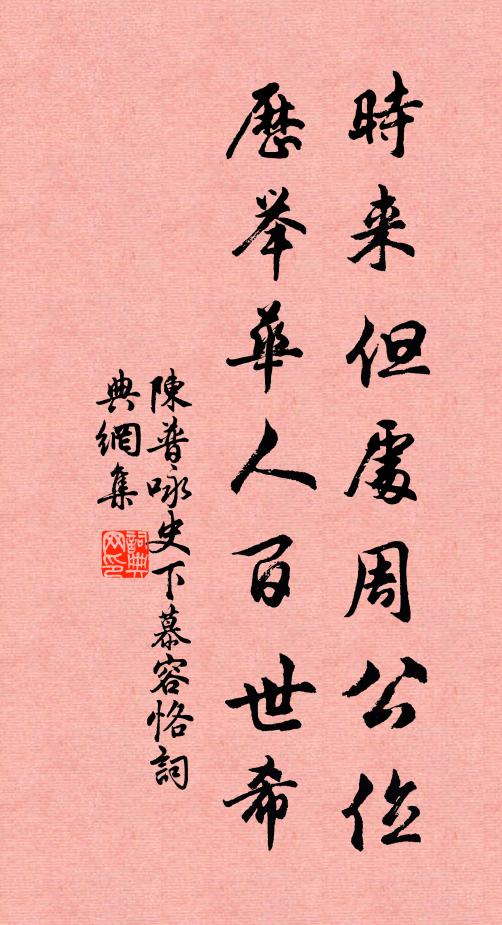 時来但處周公位
歷举華人百世希
陳普咏史下慕容恪詞
典網集
詞典
网印